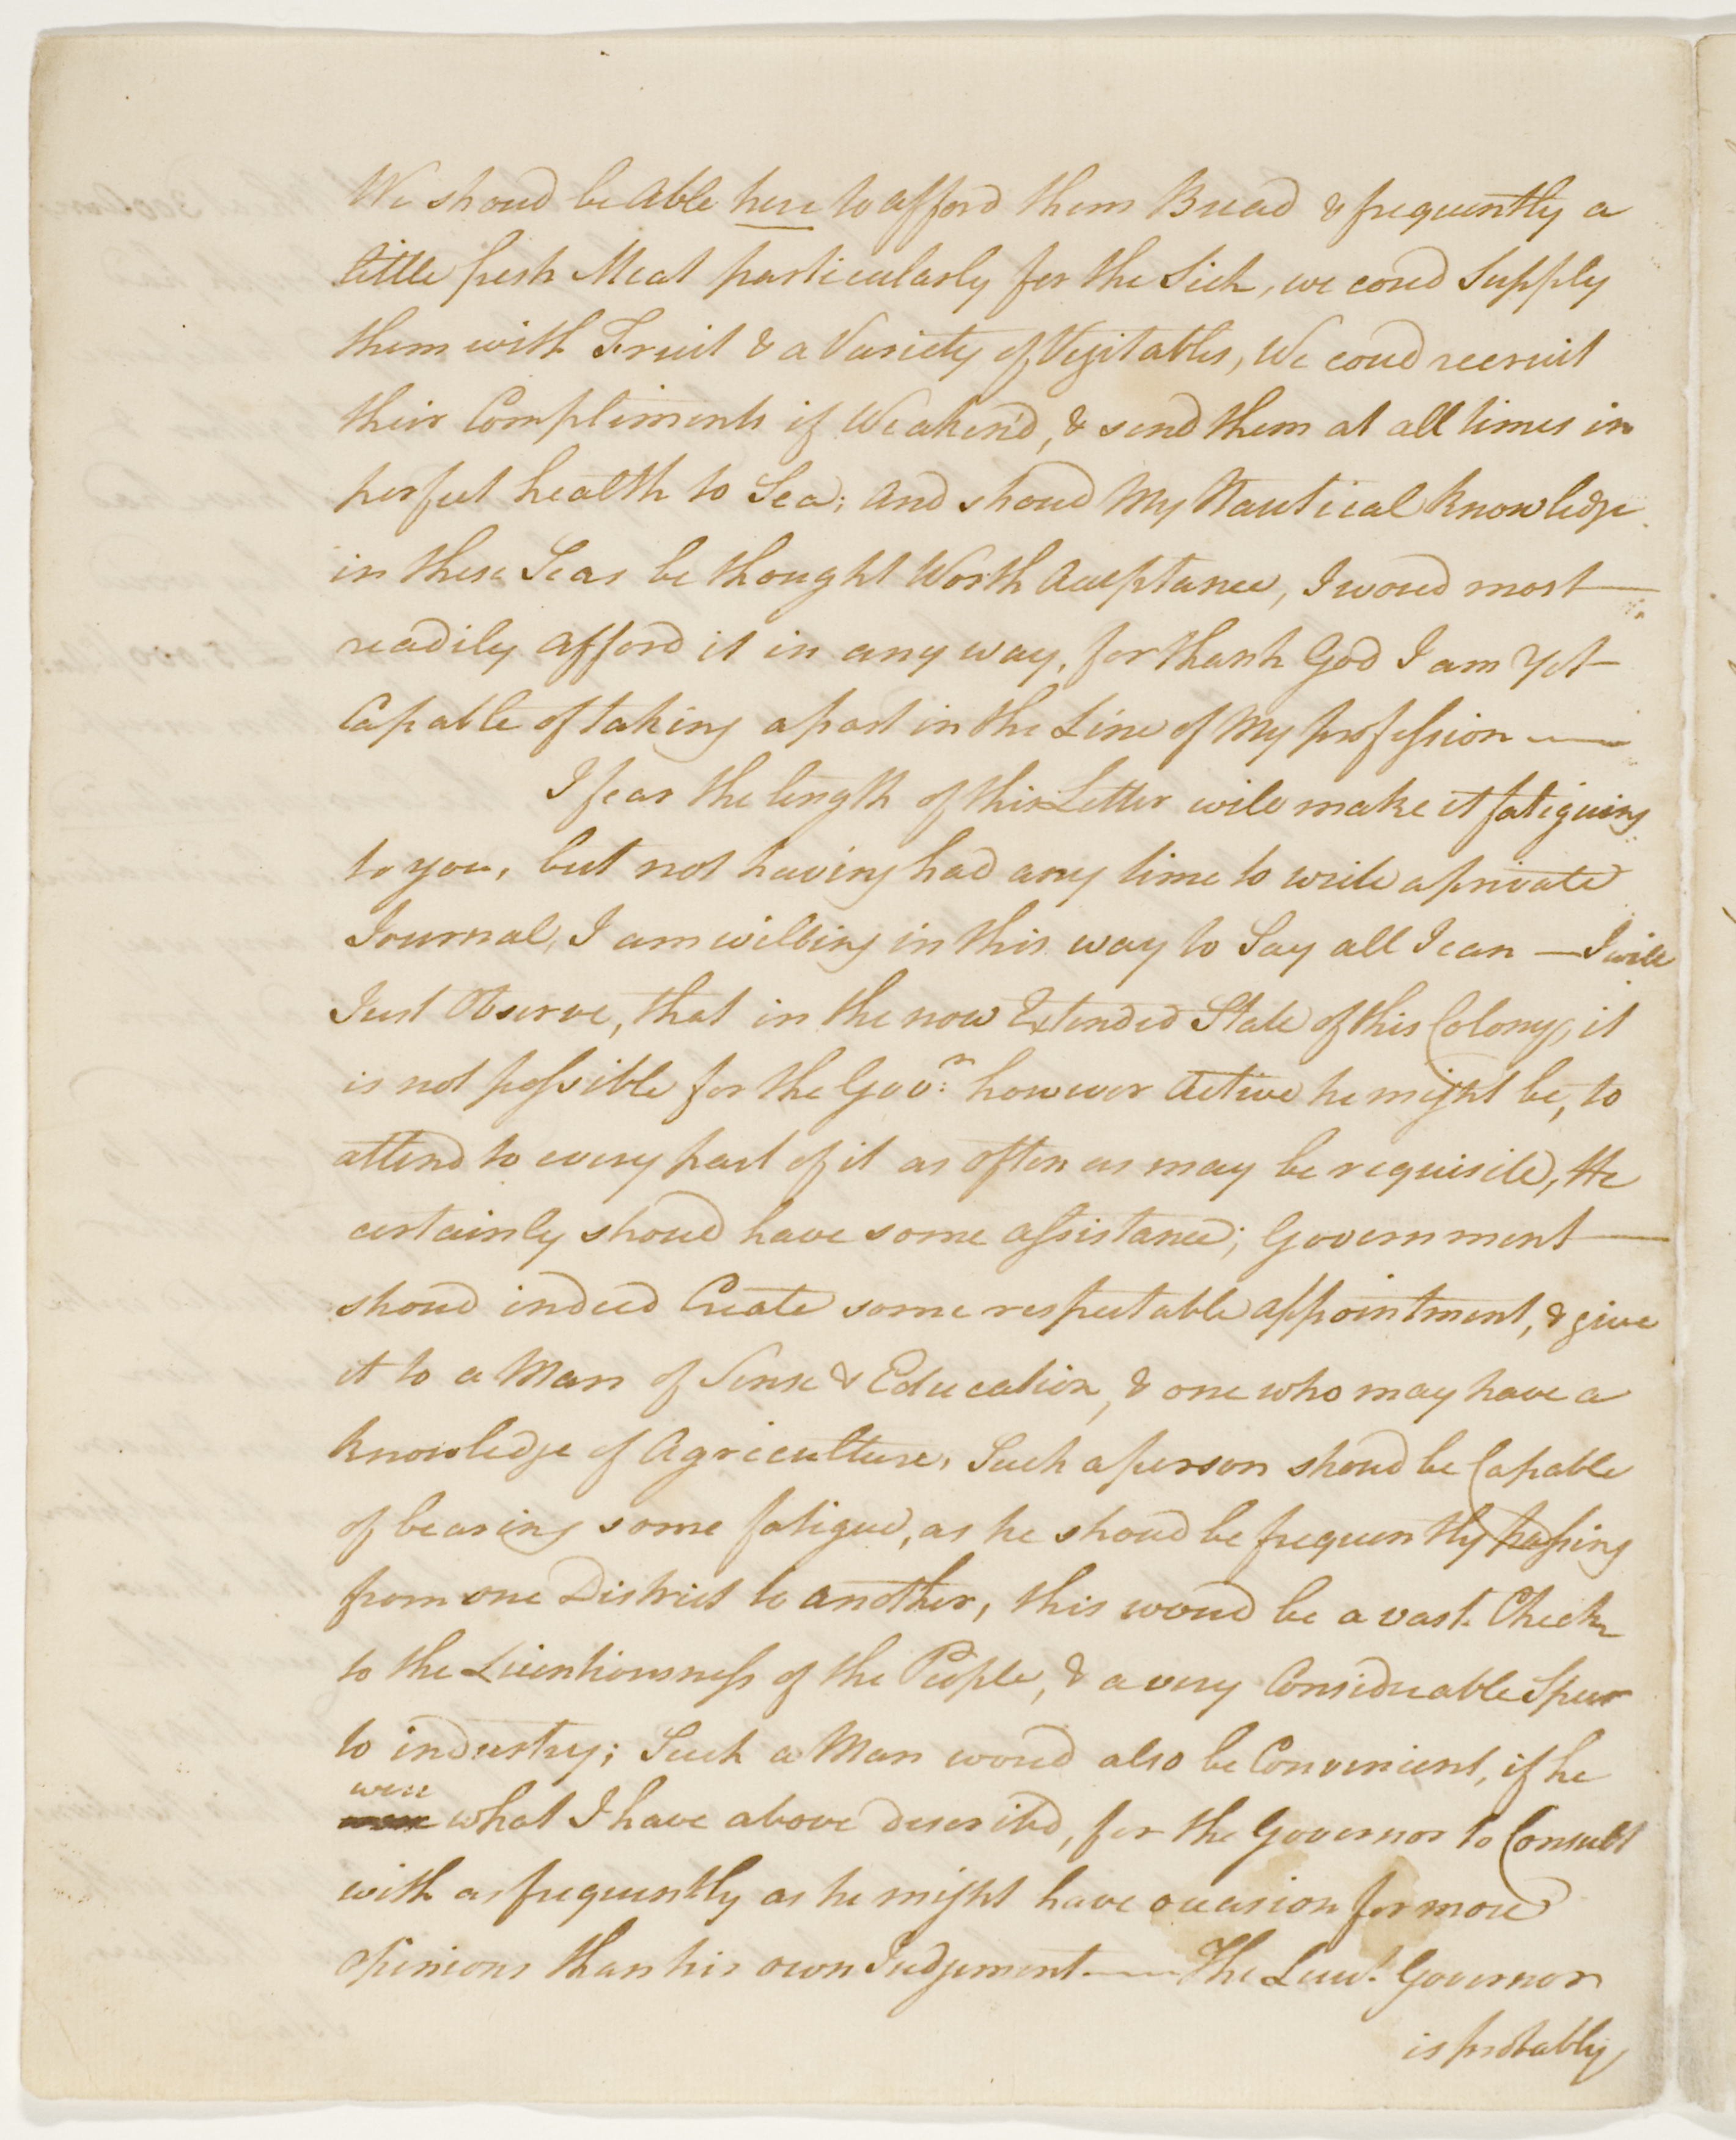 We shoud be Able here to afford them Bread & frequently a
little fresh Meat particularly for the Sick, we coud Supply
them with Fruit & a Variety of Vegitables, We coud recruit
their Compliments if Weaken'd, & send them at all times in
perfect health to Sea; And shoud My Nautical knowledge
in these Seas be thought Worth Acceptance, I woud most —
readily afford it in any way, for thank God I am Yet —
Capable of taking a part in the Line of My profession ——
I fear the length of this Letter will make it fatiguing
to you, but not having had any time to write a private
Journal, I am willing in this way to Say all I can — I will
Just Observe, that in the now Extended State of this Colony, it
is not possible for the Govr. however Active he might be, to
attend to every part of it as often as may be requisite, He
certainly shoud have some assistance; Government —
shoud indeed Create some respectable appointment, & give
it to a Man of Sense & Education, & one who may have a
knowledge of Agriculture, Such a person shoud be Capable
of bearing some fatigue, as he shoud be frequently passing
from one District to another, this woud be a vast Check
to the Licentiousness of the People, & a very Considerable Spur
to industry; Such a Man woud also be Convenient, if he
were
what I have above describd, for the Governor to Consult
with as frequently as he might have occasion for more
opinions than his own Judgement —— The Lieut. Governor
is probably